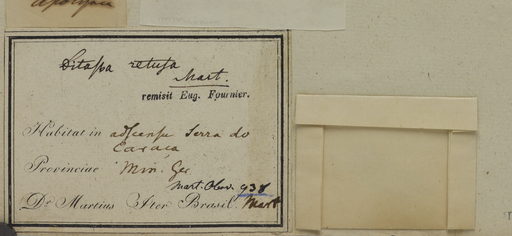 Ditassa retusa
Mart.
remisit Eug. Fournier.
Habitat in ad Serra do
Caraça
Provinciae Min. Ger
Mart. Obs. 938
Dr. Martius Iter Brasil. Mart